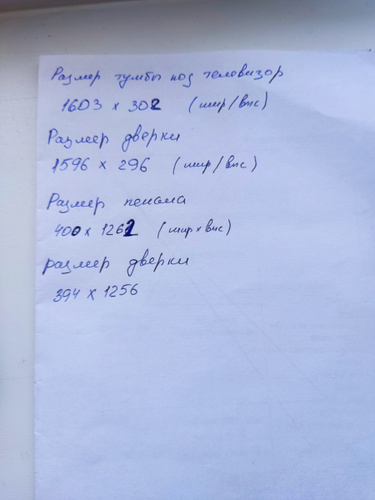 Размер тумбы под телевизор
1603 х 302 (шир/выс)
Размер дверки
1596 х 296 (шир/выс)
Размер пенала
400 х 1262 (шир х выс)
размер дверки
394 х 1256